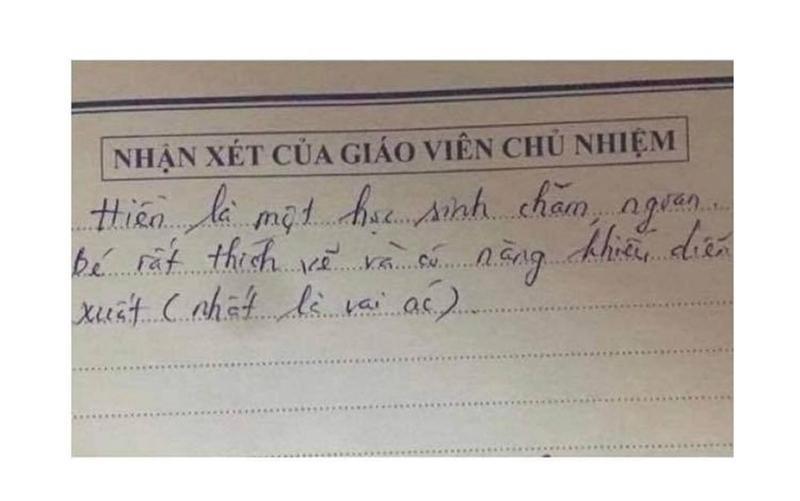 NHẬN XÉT CỦA GIÁO VIÊN CHỦ NHIỆM
Hiền là một học sinh chăm, ngoan.
Bé rất thích vẽ và có năng khiếu diễn
xuất (nhất là vai ác).